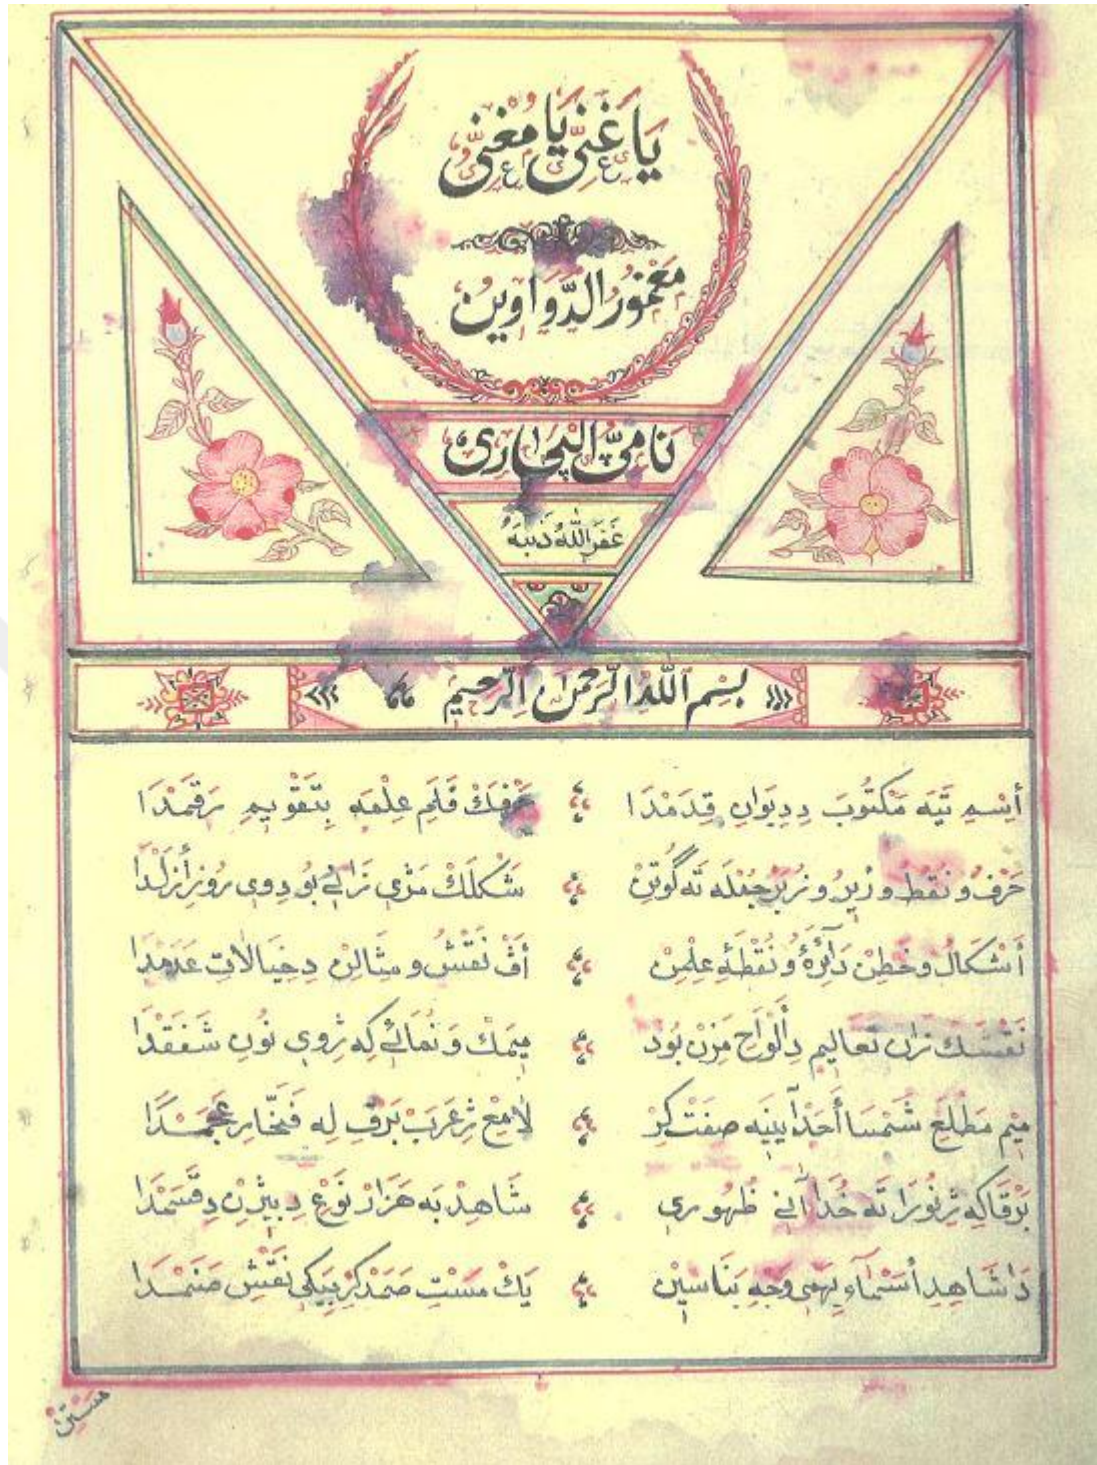 يَا غَنِيُّ يَا مُغْنِيُ
مَعْمُورُ الدَّوَاوِينْ
نَامِیُّ الْپَچَارِی
غَفَرَ اللّٰهُ ذَنْبَهُ
بِسْمِ اللّٰهِ الرَّحْمٰنِ الرَّحِيمِ
أِسْمِ تَيَه مَكْتُوبَ دِدِيوَانِ قِدَمْدَا حَرْفَكْ قَلَمِ عِلْمَه بِتَقْوِيمِ رَقَمْدَا
حَرْفُ و نُقَطُ و زِيرُ و زَبَرْ جُمْلَه تَه گُوتِنْ شَكْلَكْ مَژِي زَالِي بُو دِوِي رُوزِ أَزَلْدَا
أَشْكَالُ و خَطِنْ دَآئِرَۀُ و نُقْطَۀِ عِلْمِنْ أَڤْ نَقْشُ و مِثَالِنْ دِخَيَالَاتِ عَدَمْدَا
نَقْشَكْ ژِوَانْ تَعَالِيمِ دِأَلْوَاحِ مَزِنْ بُود مِيمَكْ وَ نُمَائِي كِه ژِرُوِي نُونِ شَفَقْدَا
مِيمِ مَطْلَعِ شَمْسَا أَحَدْ آيِنَيه صِفَتْ كِرْ لَامِعْ ژِ عَرَبْ بَرْقِ لِه فَخَّارِ عَجَمْدَا
بَرْقَا كِه ژِنُورَا تَه خُدَا آنِي ظُهُورِي شَاهِدْ بَه هَزَارْ نَوْعِ دِبِيژِنْ دِقَسَمْدَا
دَا شَاهِدِ أَسْمَآءِ يِهَمِي وَجْهِ بَنَاسِينْ يَكْ مَسْتِ صَمَدْ كِرْ يَكِي نَقْشِ صَنَمْدَا
مَسْتِنْ